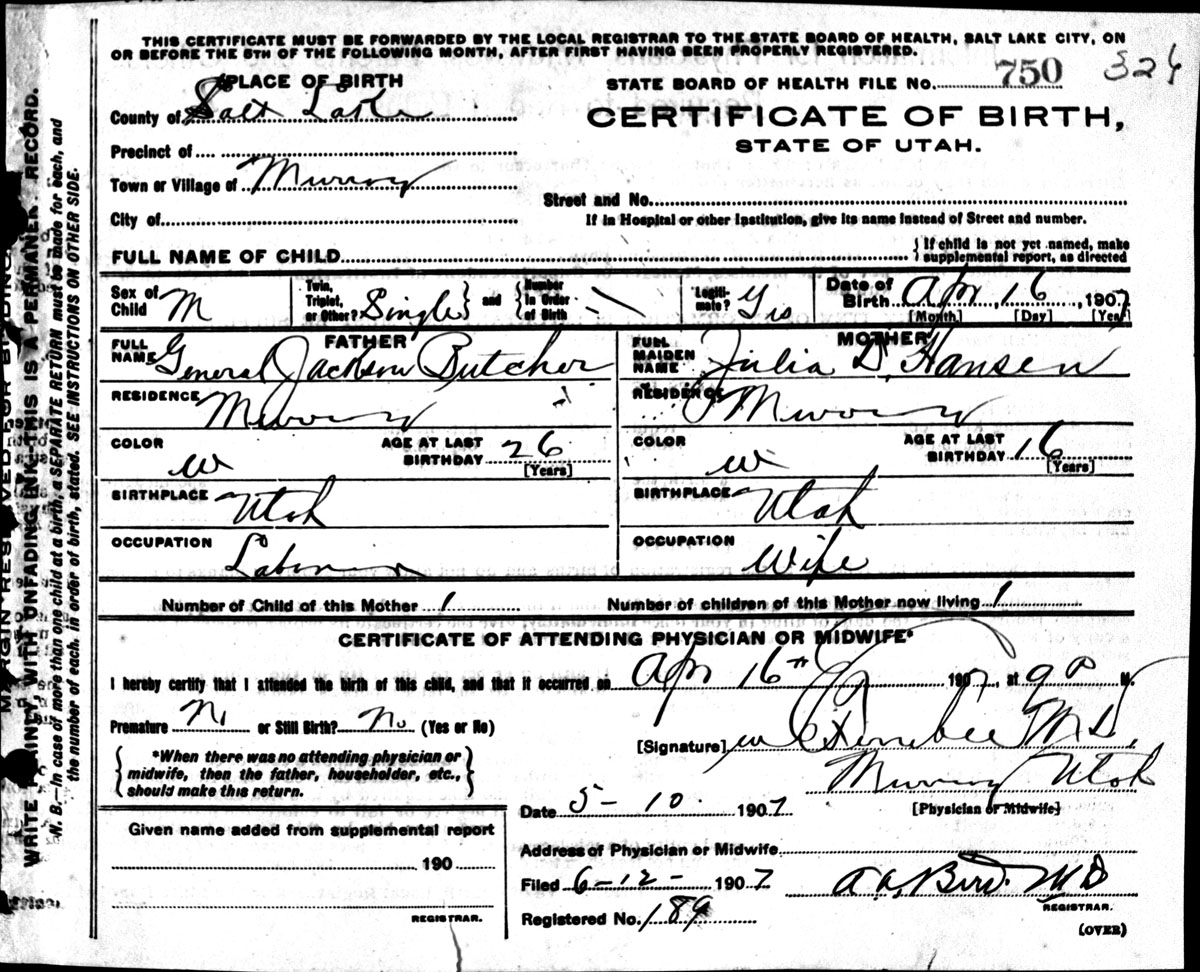 THIS CERTIFICATE MUST BE FORWARDED BY THE LOCAL REGISTRAR TO THE STATE BOARD OF HEALTH, SALT LAKE CITY, ON
OR BEFORE THE 5TH OF THE FOLLOWING MONTH, AFTER FIRST HAVING BEEN PROPERLY REGISTERED.
PLACE OF BIRTH
STATE BOARD OF HEALTH FILE NO. 750 326
County of Salt Lake
CERTIFICATE OF BIRTH,
STATE OF UTAH.
Precinct of
Town or Village of Murray
Street and No.
City of
If in Hospital or other Institution, give its name instead of Street and number.
FULL NAME OF CHILD
{If child is not yet named, make
supplemental report, as directed
Sex of Child M
Twin, Triplet, or Other? Single } and { Number in Order of Birth
Legitimate? Yis
Date of Birth Apr 16, 1907
[Month] [Day] [Year]
FATHER
FULL NAME General Jackson Butcher
RESIDENCE Murray
COLOR W
AGE AT LAST BIRTHDAY 26
[Years]
BIRTHPLACE Utah
OCCUPATION Laborer
MOTHER
FULL MAIDEN NAME Julia D. Hansen
RESIDENCE Murray
COLOR W
AGE AT LAST BIRTHDAY 16
[Years]
BIRTHPLACE Utah
OCCUPATION Wife
Number of Child of this Mother 1
Number of children of this Mother now living 1
CERTIFICATE OF ATTENDING PHYSICIAN OR MIDWIFE*
I hereby certify that I attended the birth of this child, and that it occurred on Apr 16th 1907, at 9 P M.
Premature No or Still Birth? No (Yes or No)
[Signature] M D,
Murray Utah
[Physician or Midwife]
{ *When there was no attending physician or
midwife, then the father, householder, etc.,
should make this return. }
Date 5-10 1907
Given name added from supplemental report
190
REGISTRAR.
Address of Physician or Midwife
Filed 6-12- 1907
A A, Bird. M D
REGISTRAR.
Registered No. 189
(OVER)
MARGIN RESERVED FOR BINDING
WRITE PLAINLY, WITH UNFADING INK-THIS IS A PERMANENT RECORD.
N. B.—In case of more than one child at a birth, a SEPARATE RETURN must be made for each, and
the number of each, in order of birth, stated. SEE INSTRUCTIONS ON OTHER SIDE.